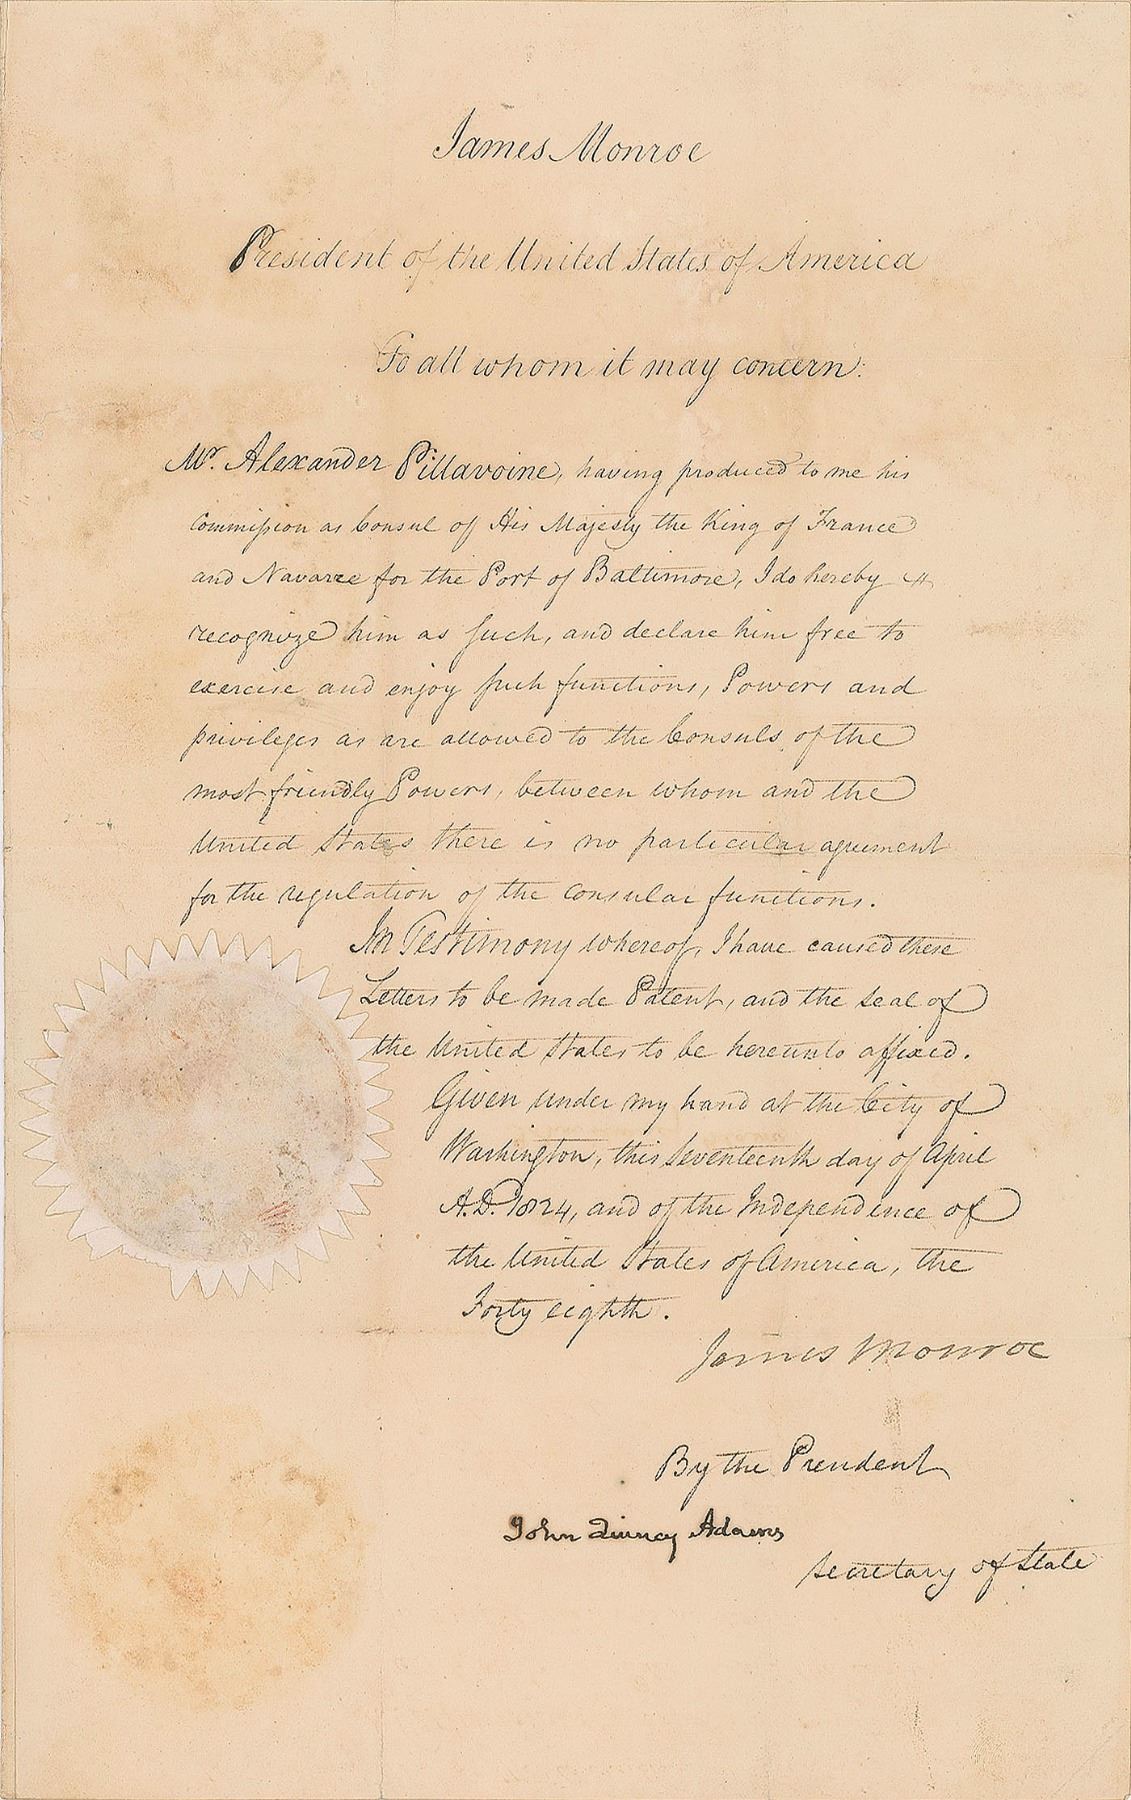 James Monroe
President of the United States of America
To all whom it may concern:
Mr. Alexander Pillavoine, having produced to me his
Commission as Consul of His Majesty the King of France
and Navarre for the Port of Baltimore, I do hereby
recognize him as such, and declare him free to
exercise and enjoy such functions, Powers and
privileges as are allowed to the Consuls of the
most friendly Powers, between whom and the
United States there is no particular agreement
for the regulation of the Consular functions.
In Testimony whereof, I have caused these
Letters to be made Patent, and the seal of
the United States to be hereunto affixed.
Given under my hand at the City of
Washington, this seventeenth day of April
A.D. 1824, and of the Independence of
the United States of America, the
Forty eighth.
James Monroe
By the President
John Quincy Adams
Secretary of State